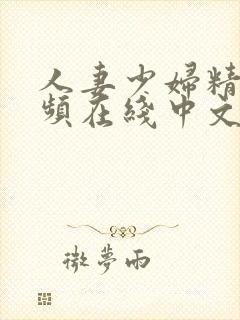 人妻少婦精
頻在綫中文
微夢雨